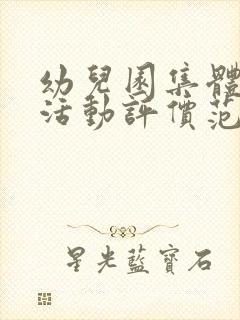 幼兒園集體
活動評價范
星光藍寶石